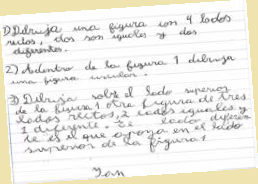 1) Dibuja una figura con 4 lados
rectos, dos son iguales y dos
diferentes.
2) Adentro de la figura 1 dibuja
una figura circular.
3) Dibuja sobre el lado superior
de la figura 1 otra figura de tres
lados rectos, 2 lados iguales y
1 diferente. El lado diferen
te es el que apoya en el lado
superior de la figura 1